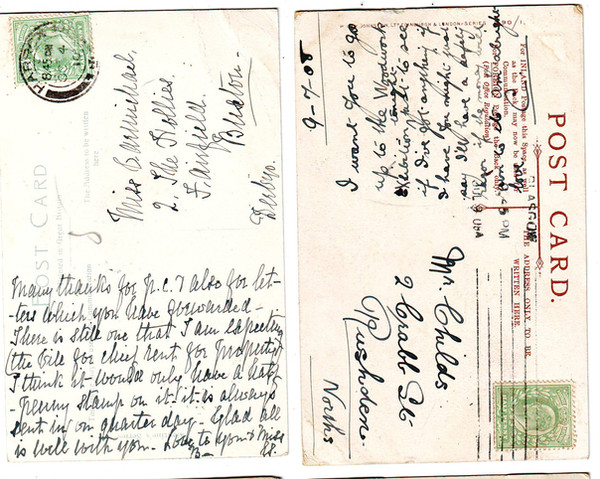 POST CARD
Miss Carmichael.
2, The Hollies
Fairfield
Buxton.
Derbys.
Many thanks for p.c. & also for let-
-ters which you have forwarded -
There is still one that I am expecting
(the bill for chief rent for property
I think it would only have a half
-penny stamp on it. it is always
sent in on quarter day - Glad all
is well with you - Love to you & Miss
9-7-08
I want you to go
up to the Woodwork
Exhibition just to see
if I've got anything if
I have you might just
say I'll have a
POST CARD.
For INLAND Postage this Space, as well
as the back, may now be used for
Communication.
(Post Office Regulation).
THE ADDRESS ONLY, TO BE
WRITTEN HERE.
GLASGOW
Mr. Childs
2 Crabb St
Rushden
Norths